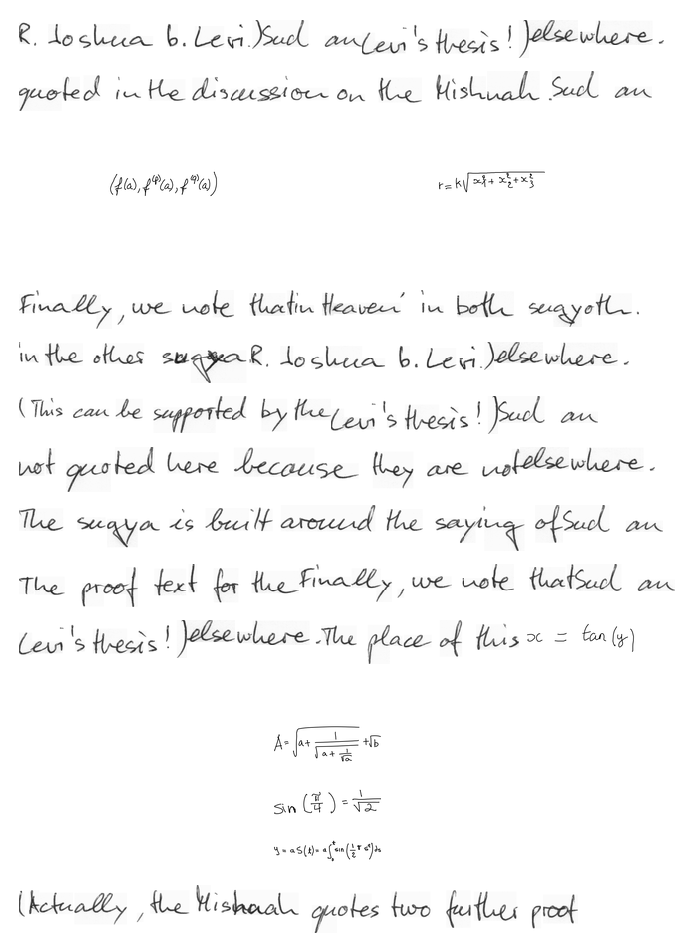 R. Joshua b. Levi.)Sud anLevi's thesis!)elsewhere.
quoted in the discussion on the Mishnah.Sud an
(f(a), f^(φ)(a), f^(φ)(a)) r = k√(x₁² + x₂² + x₃²)
Finally, we note thatin Heaven' in both sugyoth.
in the other sugyaR. Joshua b. Levi.)elsewhere.
(This can be supported by theLevi's thesis!)Sud an
not quoted here because they are notelsewhere.
The sugya is built around the saying ofSud an
The proof text for theFinally, we note thatSud an
Levi's thesis!)elsewhere.The place of this x = tan(y)
A = √(a + 1/√(a + 1/√a)) + √b
sin(π/4) = 1/√2
y = aS(t) = a∫₀ᵗ sin(½πs²)ds
(Actually, the Mishnah quotes two further proof